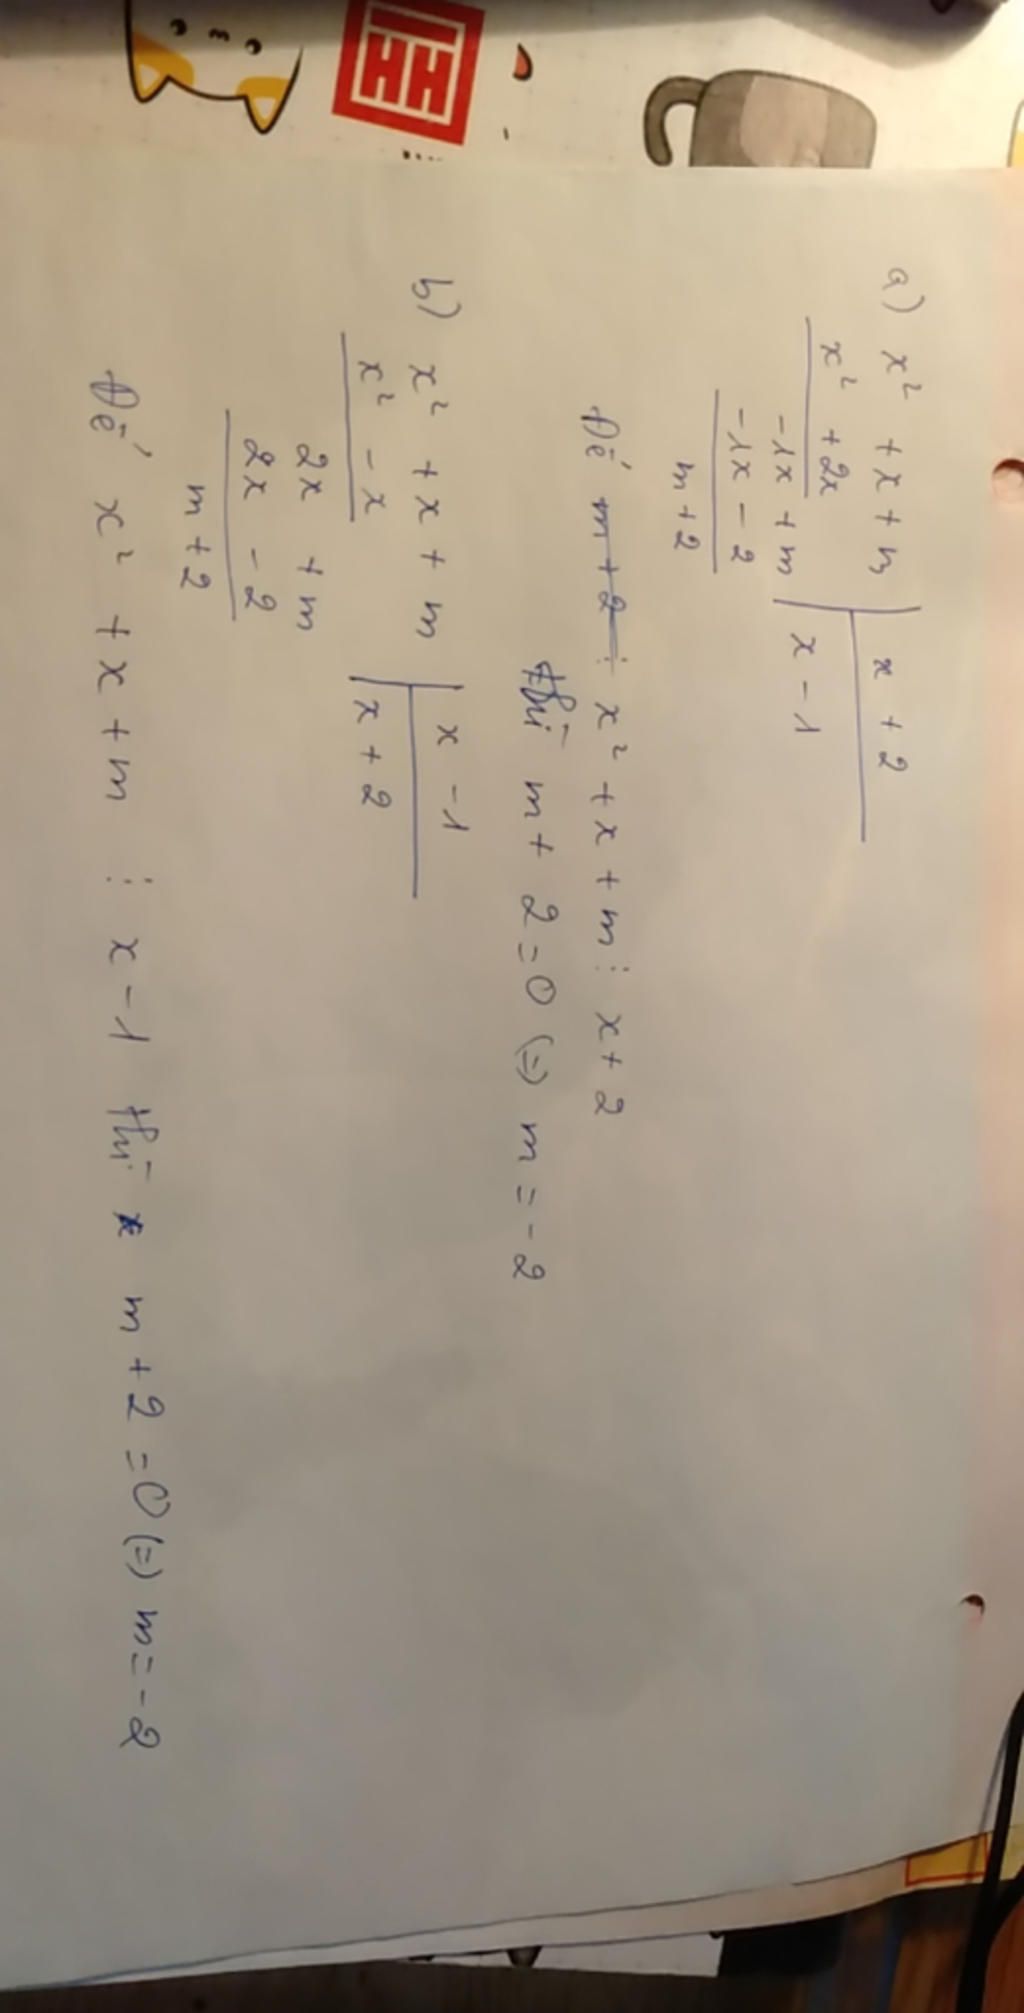 a) x² + x + m | x + 2
x² + 2x | x - 1
-1x + m
-1x - 2
m + 2
Để x² + x + m ⋮ x + 2
thì m + 2 = 0 (=) m = -2
b) x² + x + m | x - 1
x² - x | x + 2
2x + m
2x - 2
m + 2
Để x² + x + m ⋮ x - 1 thì m + 2 = 0 (=) m = -2